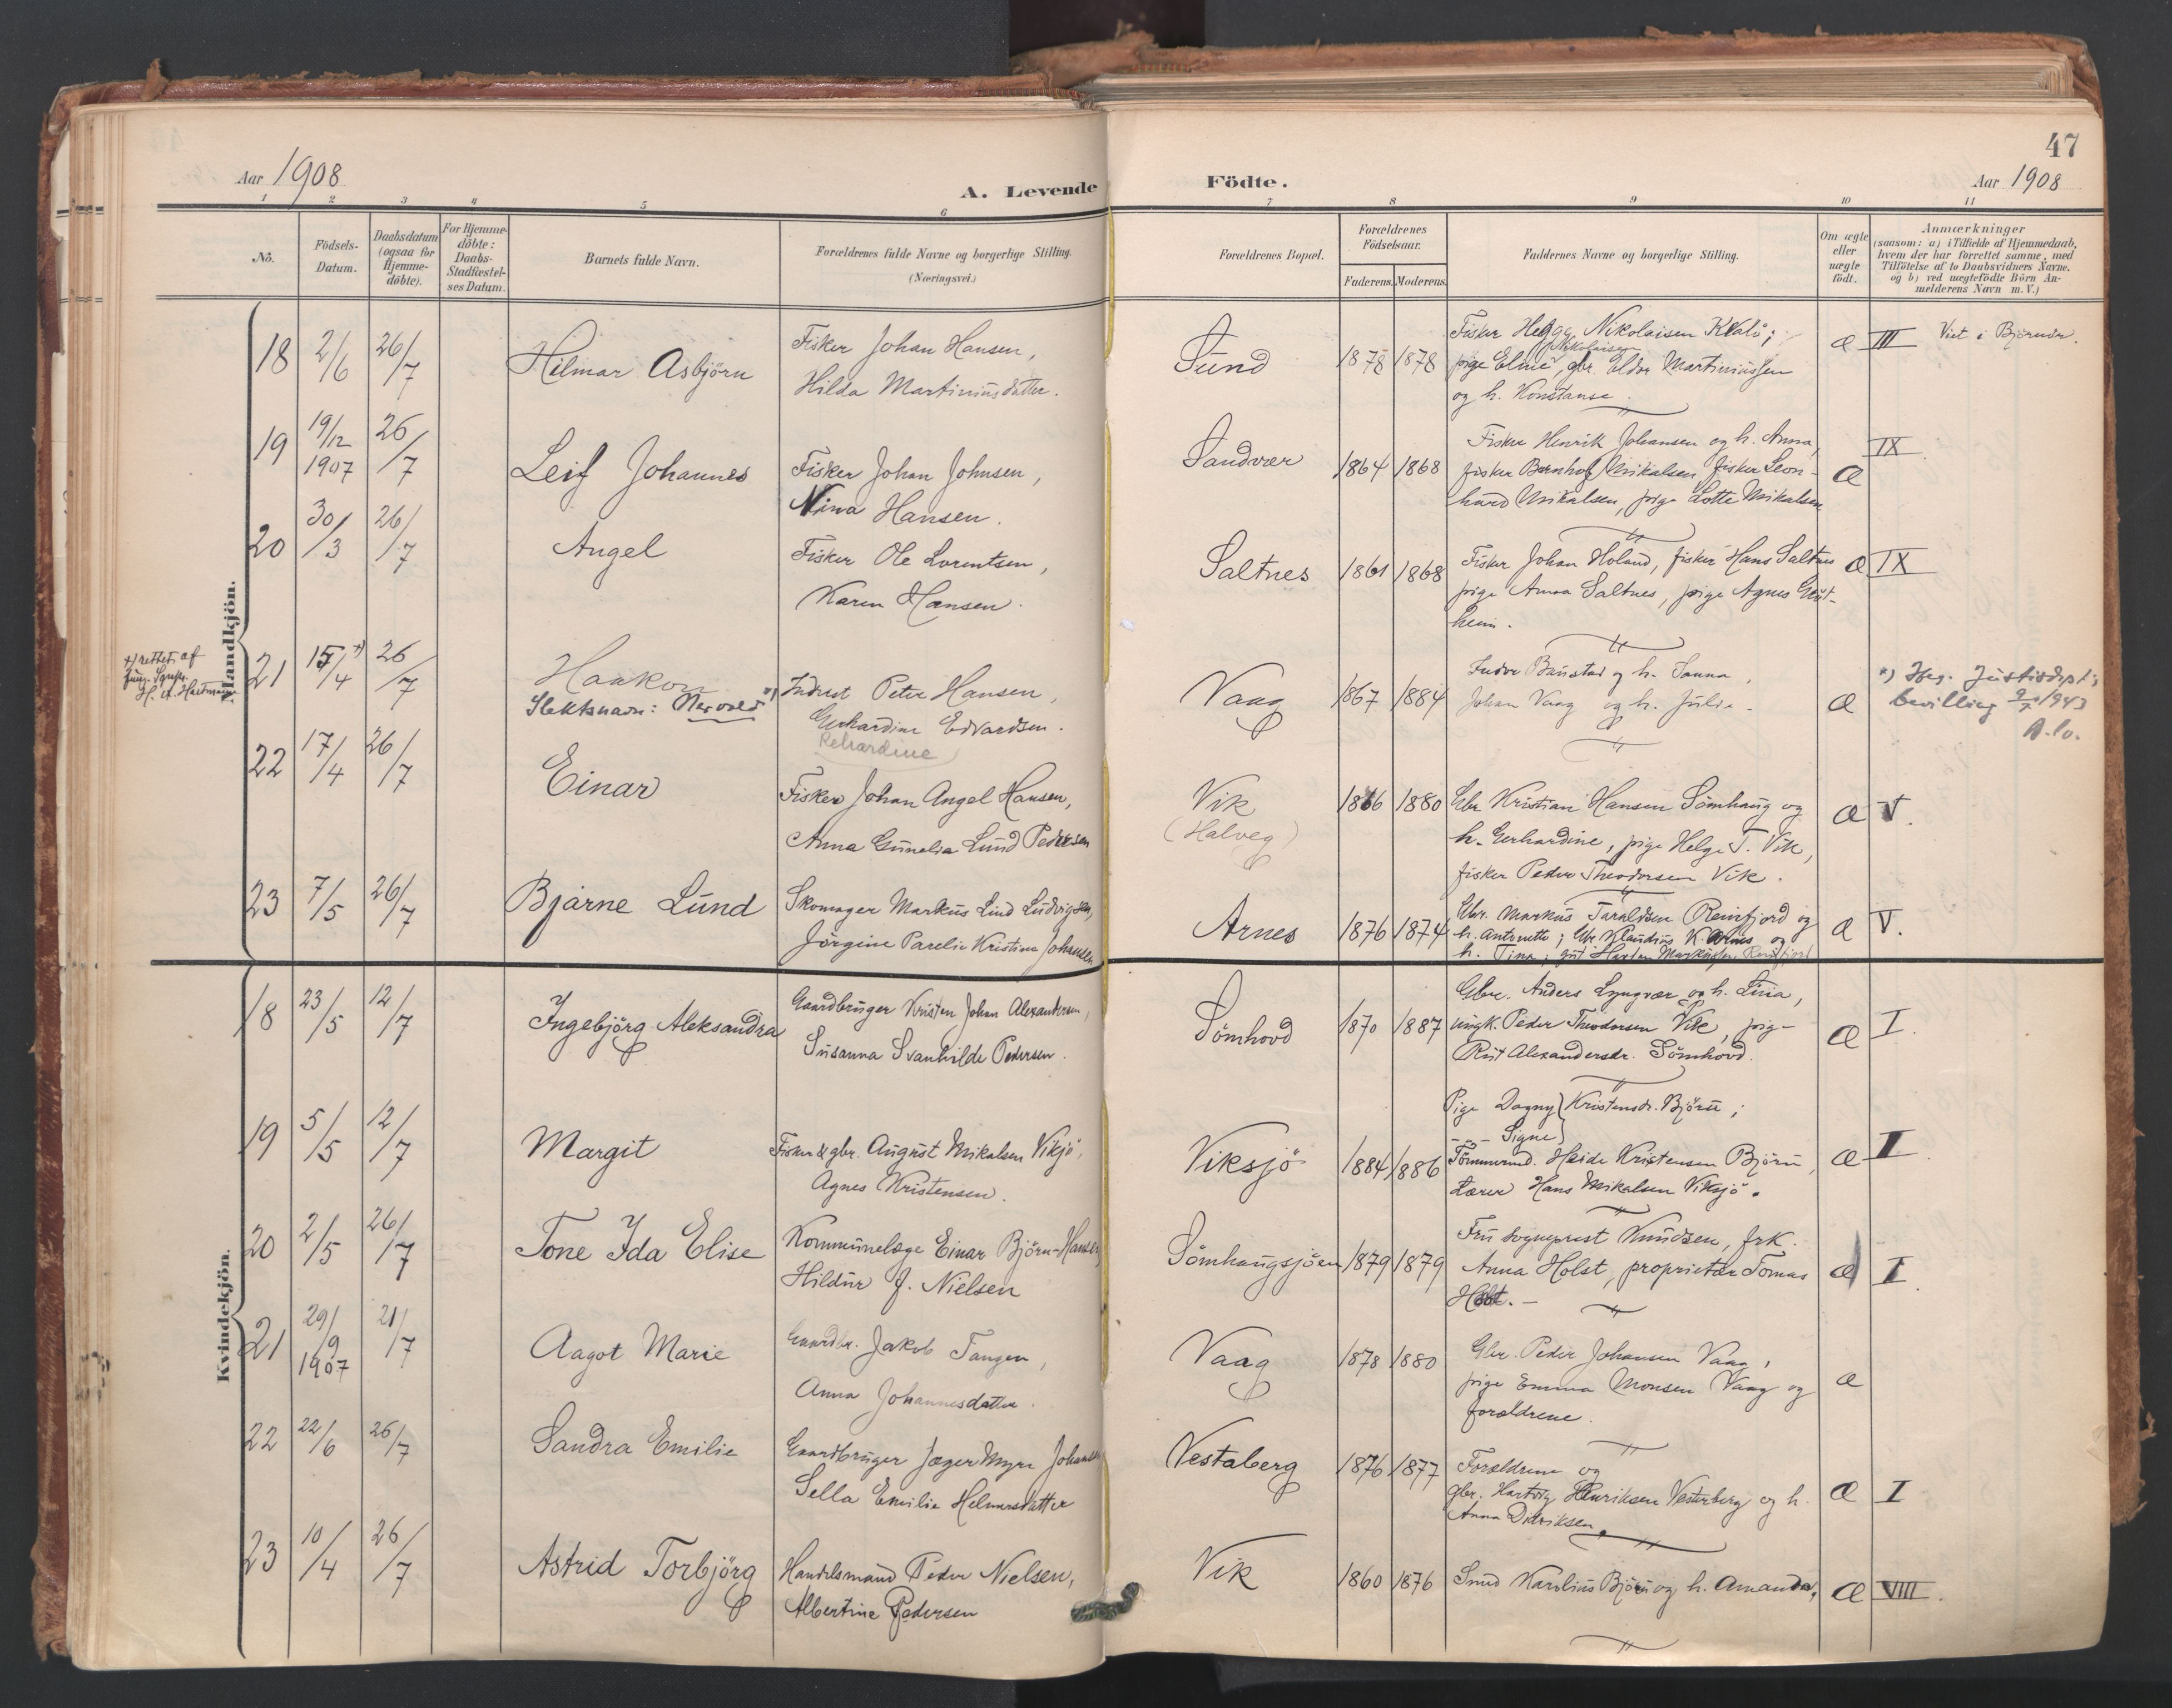 47
Aar 1908
A. Levende Födte.
Aar 1908
1 2 3 4 5 6 7 8 9 10 11
No.
Födsels-Datum.
Daabsdatum (ogsaa for Hjemme-döbte).
For Hjemme-döbte: Daabs-Stadfæstel-ses Datum.
Barnets fulde Navn.
Forældrenes fulde Navne og borgerlige Stilling. (Næringsvei.)
Forældrenes Bopæl.
Forældrenes Födselsaar.
Faderens. Moderens.
Faddernes Navne og borgerlige Stilling.
Om ægte eller uægte födt.
Anmærkninger
(saasom: a) i Tilfælde af Hjemmedaab,
hvem der har forrettet samme, med
Tilföielse af to Daabsvidners Navne,
og b) ved uægtefödte Börn An-
melderens Navn m. V.)
Mandkjön.
18 2/6 26/7 Hilmar Asbjörn
Fisker Johan Hansen,
Hilda Martiniusdatter.
Sund 1878 1878
Fisker Nikolaisen Kvalö;
Nikolaisen
pige Eline, gbr. Eldor Martiniussen
og h. Konstanse.
Æ III Viet i Björnör.
19 19/12 1907 26/7 Leif Johannes
Fisker Johan Johnsen,
Nina Hansen.
Sandvær 1864 1868
Fisker Henrik Johansen og h. Anna,
fisker Bernhof Mikalsen, fisker Leon-
hard Mikalsen, pige Lotte Mikalsen
Æ IX
20 30/3 26/7 Angel
Fisker Ole Lorentsen,
Karen Hansen.
Saltnes 1861 1868
Fisker Johan Holand, fisker Hans Saltnes
pige Anna Saltnes, pige Agnes
heim.
Æ IX
+) rettet af
H. A. Hartmann
21 15/4 +) 26/7 Haakon
Slektsnavn: Nervold *)
Indrest Peter Hansen,
Gerhardine Edvardsen.
Rehardine
Vaag 1867 1884
Indre Baustad og h. Sanna,
Johan Vaag og h. Julie.
Æ
*) Justisdept.s
bevilling 9/7 1943
22 17/4 26/7 Einar
Fisker Johan Angel Hansen,
Anna Gunelia Lund Pedersen
Vik
(Halveg)
1866 1880
Gbr. Kristian Hansen Sömhaug og
h. Gerhardine, pige Helga T. Vik,
fisker Peder Theodorsen Vik.
Æ V.
23 7/5 26/7 Bjarne Lund
Skomager Markus Lind Ludvigsen,
Jörgine Parelie Kristine Johansen
Arnes 1876 1874
Gbr. Markus Taraldsen Reinfjord og
h. Antonette; Gbr. Klaudius K. Arnes og
h. Tina; gut Markussen Reinfjord
Æ V.
Kvindekjön.
18 23/5 12/7 Ingebjörg Aleksandra
Gaardbruger Kristen Johan Alexandersen,
Susanna Svanhilde Pedersen.
Sömhovd 1870 1887
Gbr. Anders Lyngvær og h. Lina,
ungk. Peder Theodorsen Vik, pige
Rut Alexandersdr. Sömhovd.
Æ I.
19 5/5 12/7 Margit
Fisker & gbr. August Mikalsen Viksjö,
Agnes Kristensen.
Viksjö 1884 1886
Pige Dagny } Kristensdr. Björn;
- - - Signe }
Tömmermd. Heide Kristensen Björn,
Lærer Hans Mikalsen Viksjö.
Æ I
20 2/5 26/7 Tone Ida Elise
Kommunelæge Einar Björn-Hansen,
Hildur J. Nielsen
Sömhaugsjöen 1879 1879
Fru sogneprest Knudsen, frk.
Anna Holst, proprietær Tomas
Holst. -
Æ I
21 29/9 1907 21/7 Aagot Marie
Gaardbr. Jakob Tangen,
Anna Johannesdatter.
Vaag 1878 1880
Gbr. Peder Johansen Vaag,
pige Emma Monsen Vaag og
forældrene.
Æ
22 22/6 26/7 Sandra Emilie
Gaardbruger Jæger Myre Johansen
Sella Emilie Helmersdatter
Vestaberg 1876 1877
Forældrene og
gbr. Hartvig Henriksen Vesterberg og h.
Anna Didriksen.
Æ I
23 10/4 26/7 Astrid Torbjörg
Handelsmand Peder Nielsen,
Albertine Pedersen
Vik 1860 1876
Smed Karolius Björn og h. Amanda.
Æ VIII.